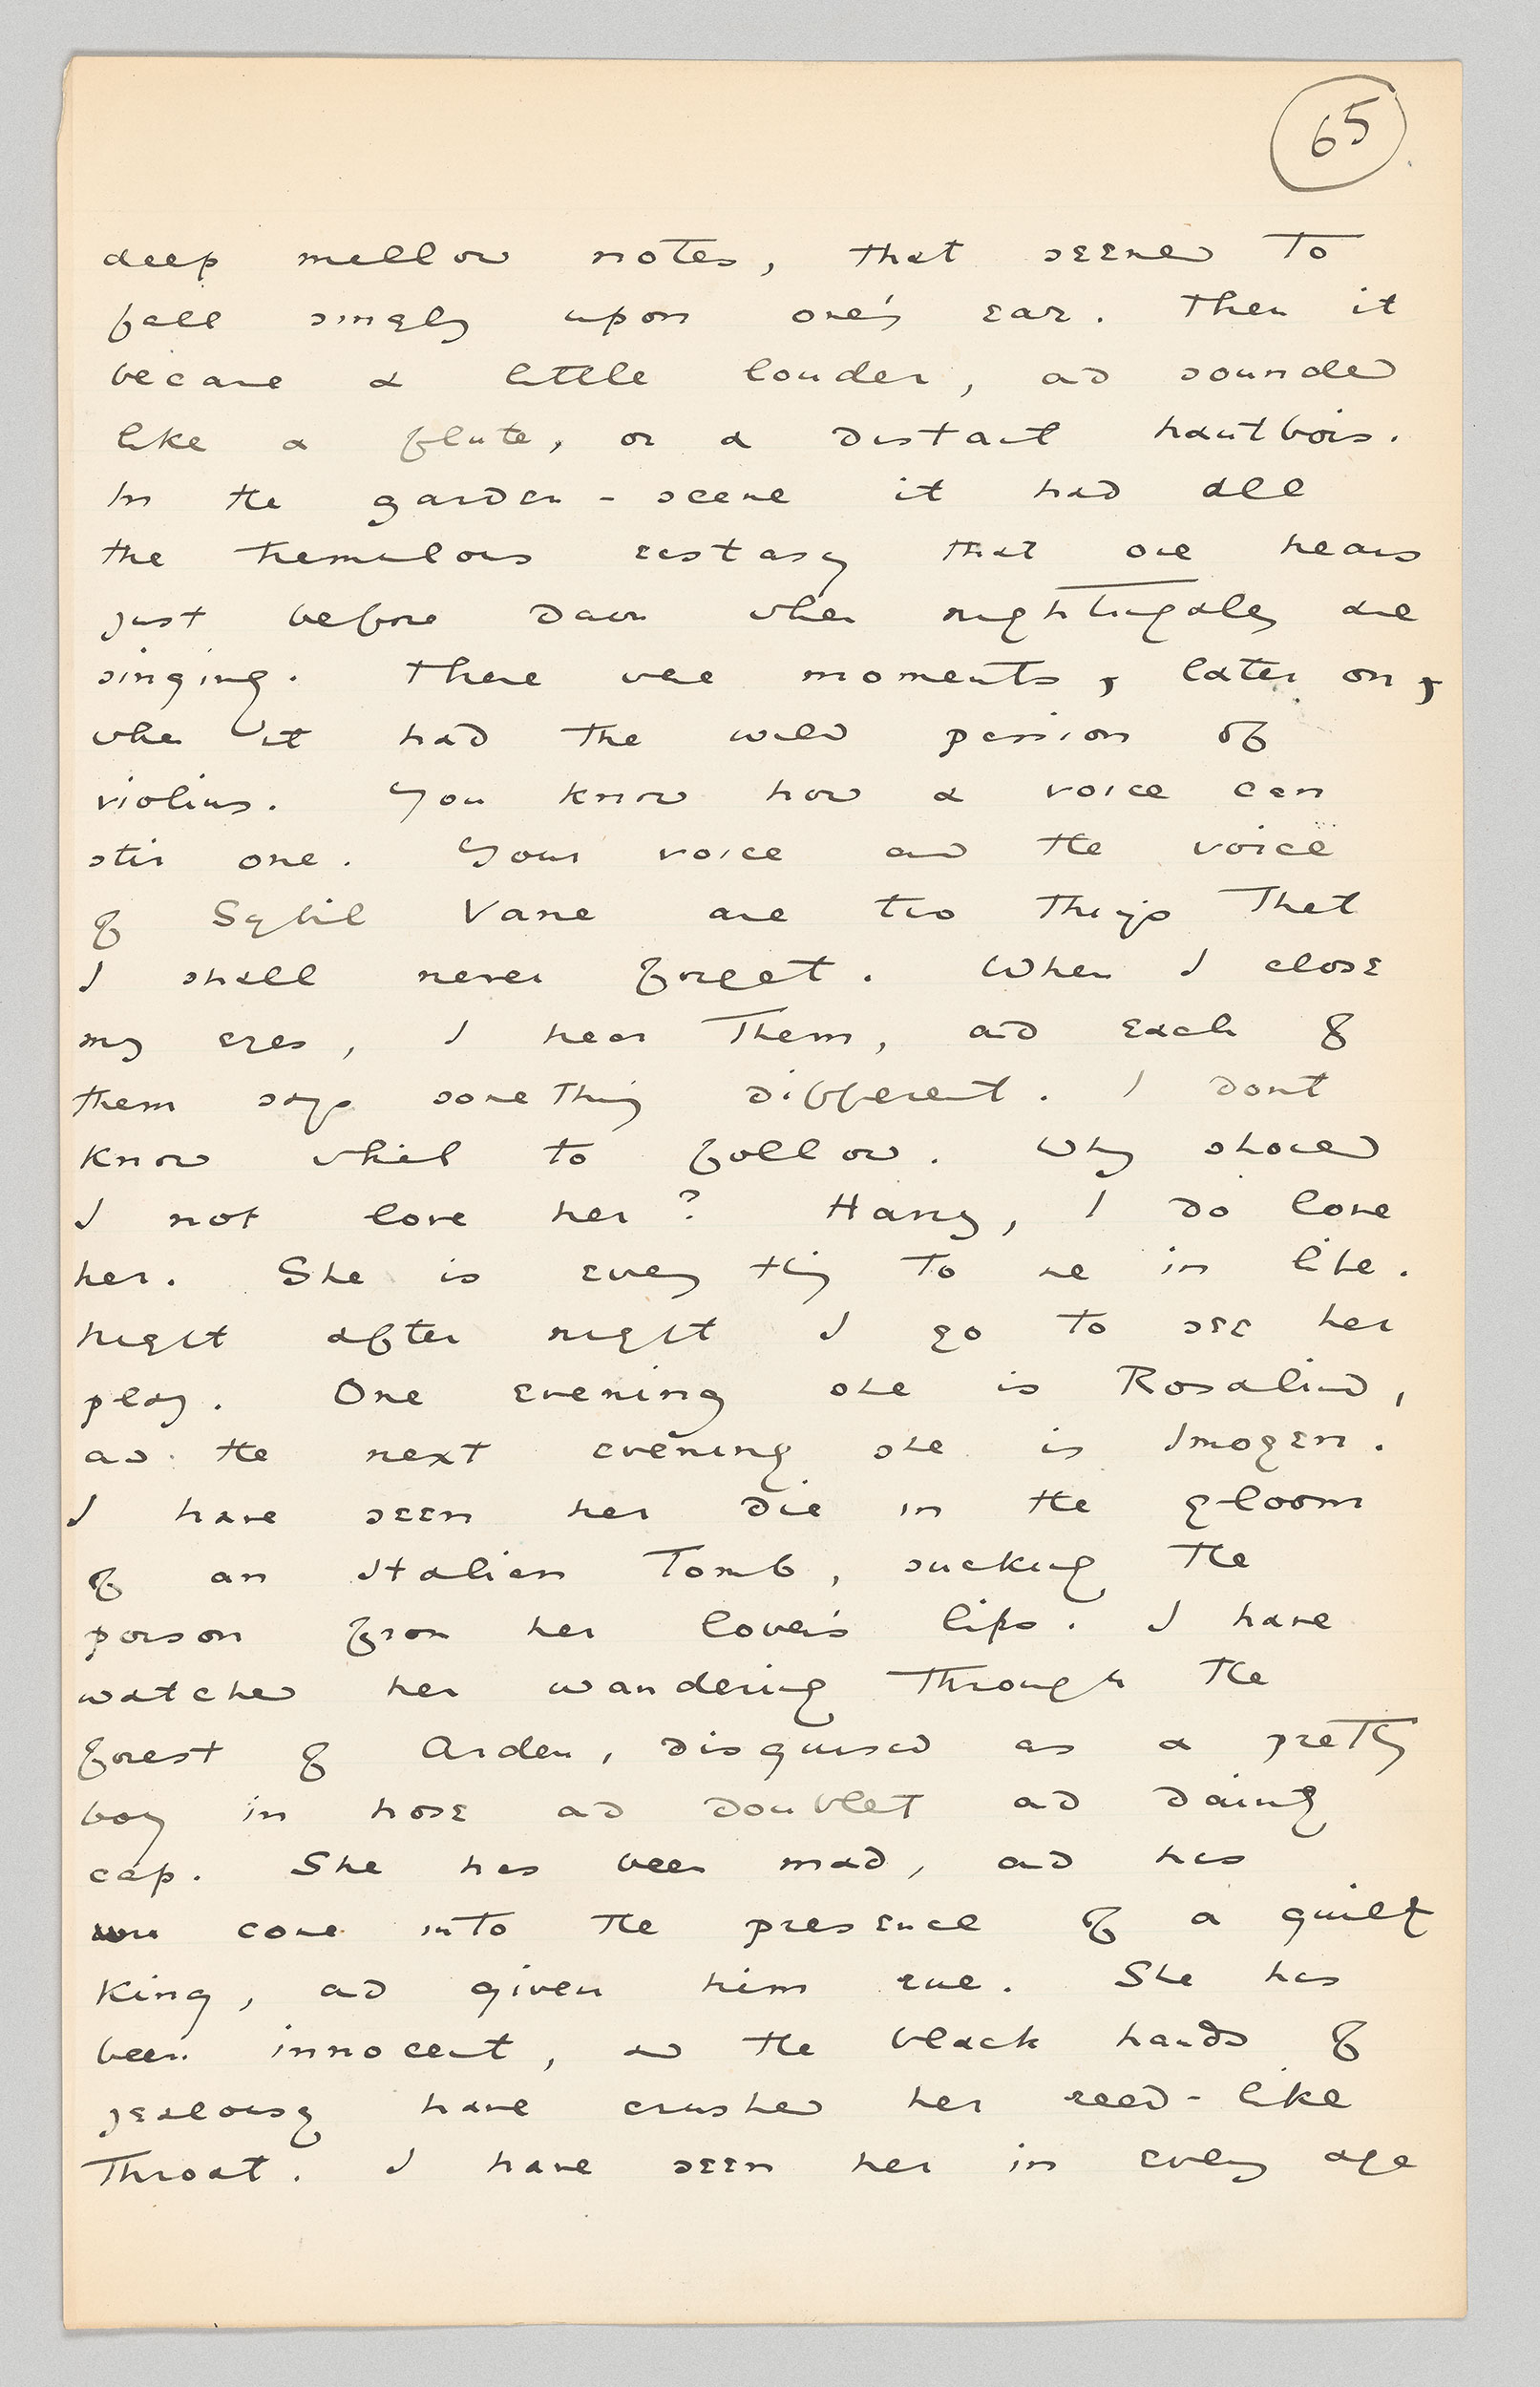 65
deep mellow notes, that seemed to
fall singly upon one's ear. Then it
became a little louder, and sounded
like a flute, or a distant hautbois.
In the garden-scene it had all
the tremulous ecstasy that one hears
just before dawn when nightingales are
singing. There were moments, later on,
when it had the wild passion of
violins. You know how a voice can
stir one. Your voice and the voice
of Sybil Vane are two things that
I shall never forget. When I close
my eyes, I hear them, and each of
them says something different. I dont
know which to follow. Why should
I not love her? Harry, I do love
her. She is everything to me in life.
Night after night I go to see her
play. One evening she is Rosalind,
and the next evening she is Imogen.
I have seen her die in the gloom
of an Italian tomb, sucking the
poison from her lover's lips. I have
watched her wandering through the
forest of Arden, disguised as a pretty
boy in hose and doublet and dainty
cap. She has been mad, and has
come into the presence of a guilty
King, and given him rue. She has
been innocent, and the black hands of
jealousy have crushed her reed-like
throat. I have seen her in every age